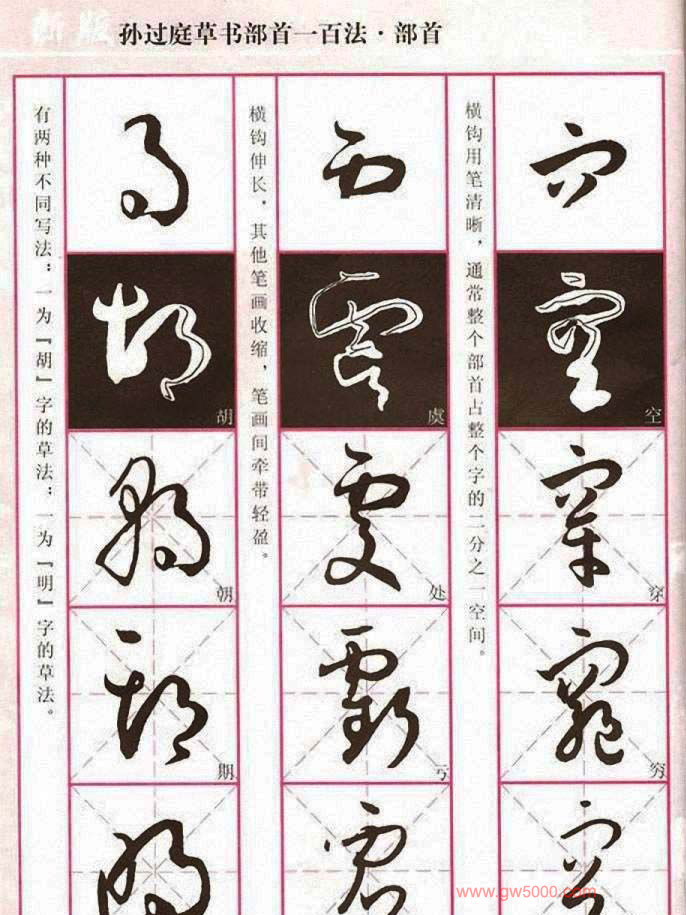 新版
孙过庭草书部首一百法·部首
横钩用笔清晰，通常整个部首占整个字的二分之一空间。
空
穿
穷
横钩伸长，其他笔画收缩，笔画间牵带轻盈。
虞
处
亏
有两种不同写法：一为『胡』字的草法；一为『明』字的草法。
胡
朝
期
www.gw5000.com